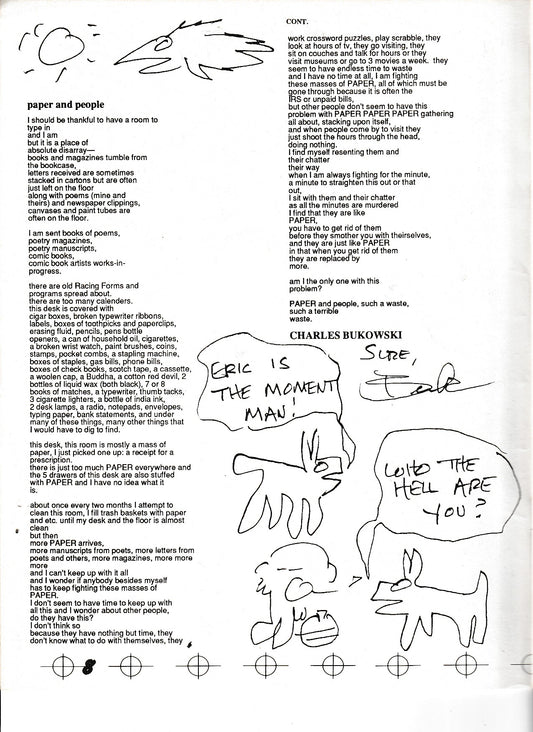 paper and people
I should be thankful to have a room to
type in
and I am
but it is a place of
absolute disarray—
books and magazines tumble from
the bookcase,
letters received are sometimes
stacked in cartons but are often
just left on the floor
along with poems (mine and
theirs) and newspaper clippings,
canvases and paint tubes are
often on the floor.
I am sent books of poems,
poetry magazines,
poetry manuscripts,
comic books,
comic book artists works-in-
progress.
there are old Racing Forms and
programs spread about.
there are too many calenders.
this desk is covered with
cigar boxes, broken typewriter ribbons,
labels, boxes of toothpicks and paperclips,
erasing fluid, pencils, pens bottle
openers, a can of household oil, cigarettes,
a broken wrist watch, paint brushes, coins,
stamps, pocket combs, a stapling machine,
boxes of staples, gas bills, phone bills,
boxes of check books, scotch tape, a cassette,
a woolen cap, a Buddha, a cotton red devil, 2
bottles of liquid wax (both black), 7 or 8
books of matches, a typewriter, thumb tacks,
3 cigarette lighters, a bottle of india ink,
2 desk lamps, a radio, notepads, envelopes,
typing paper, bank statements, and under
many of these things, many other things that
I would have to dig to find.
this desk, this room is mostly a mass of
paper, I just picked one up: a receipt for a
prescription.
there is just too much PAPER everywhere and
the 5 drawers of this desk are also stuffed
with PAPER and I have no idea what it
is.
about once every two months I attempt to
clean this room, I fill trash baskets with paper
and etc. until my desk and the floor is almost
clean
but then
more PAPER arrives,
more manuscripts from poets, more letters from
poets and others, more magazines, more more
more
and I can't keep up with it all
and I wonder if anybody besides myself
has to keep fighting these masses of
PAPER.
I don't seem to have time to keep up with
all this and I wonder about other people,
do they have this?
I don't think so
because they have nothing but time, they
don't know what to do with themselves, they
8
CONT.
work crossword puzzles, play scrabble, they
look at hours of tv, they go visiting, they
sit on couches and talk for hours or they
visit museums or go to 3 movies a week. they
seem to have endless time to waste
and I have no time at all, I am fighting
these masses of PAPER, all of which must be
gone through because it is often the
IRS or unpaid bills,
but other people don't seem to have this
problem with PAPER PAPER PAPER gathering
all about, stacking upon itself,
and when people come by to visit they
just shoot the hours through the head,
doing nothing.
I find myself resenting them and
their chatter
their way
when I am always fighting for the minute,
a minute to straighten this out or that
out,
I sit with them and their chatter
as all the minutes are murdered
I find that they are like
PAPER,
you have to get rid of them
before they smother you with theirselves,
and they are just like PAPER
in that when you get rid of them
they are replaced by
more.
am I the only one with this
problem?
PAPER and people, such a waste,
such a terrible
waste.
CHARLES BUKOWSKI
SURE,
ERIC IS
THE MOMENT
MAN!
WHO THE
HELL ARE
YOU?